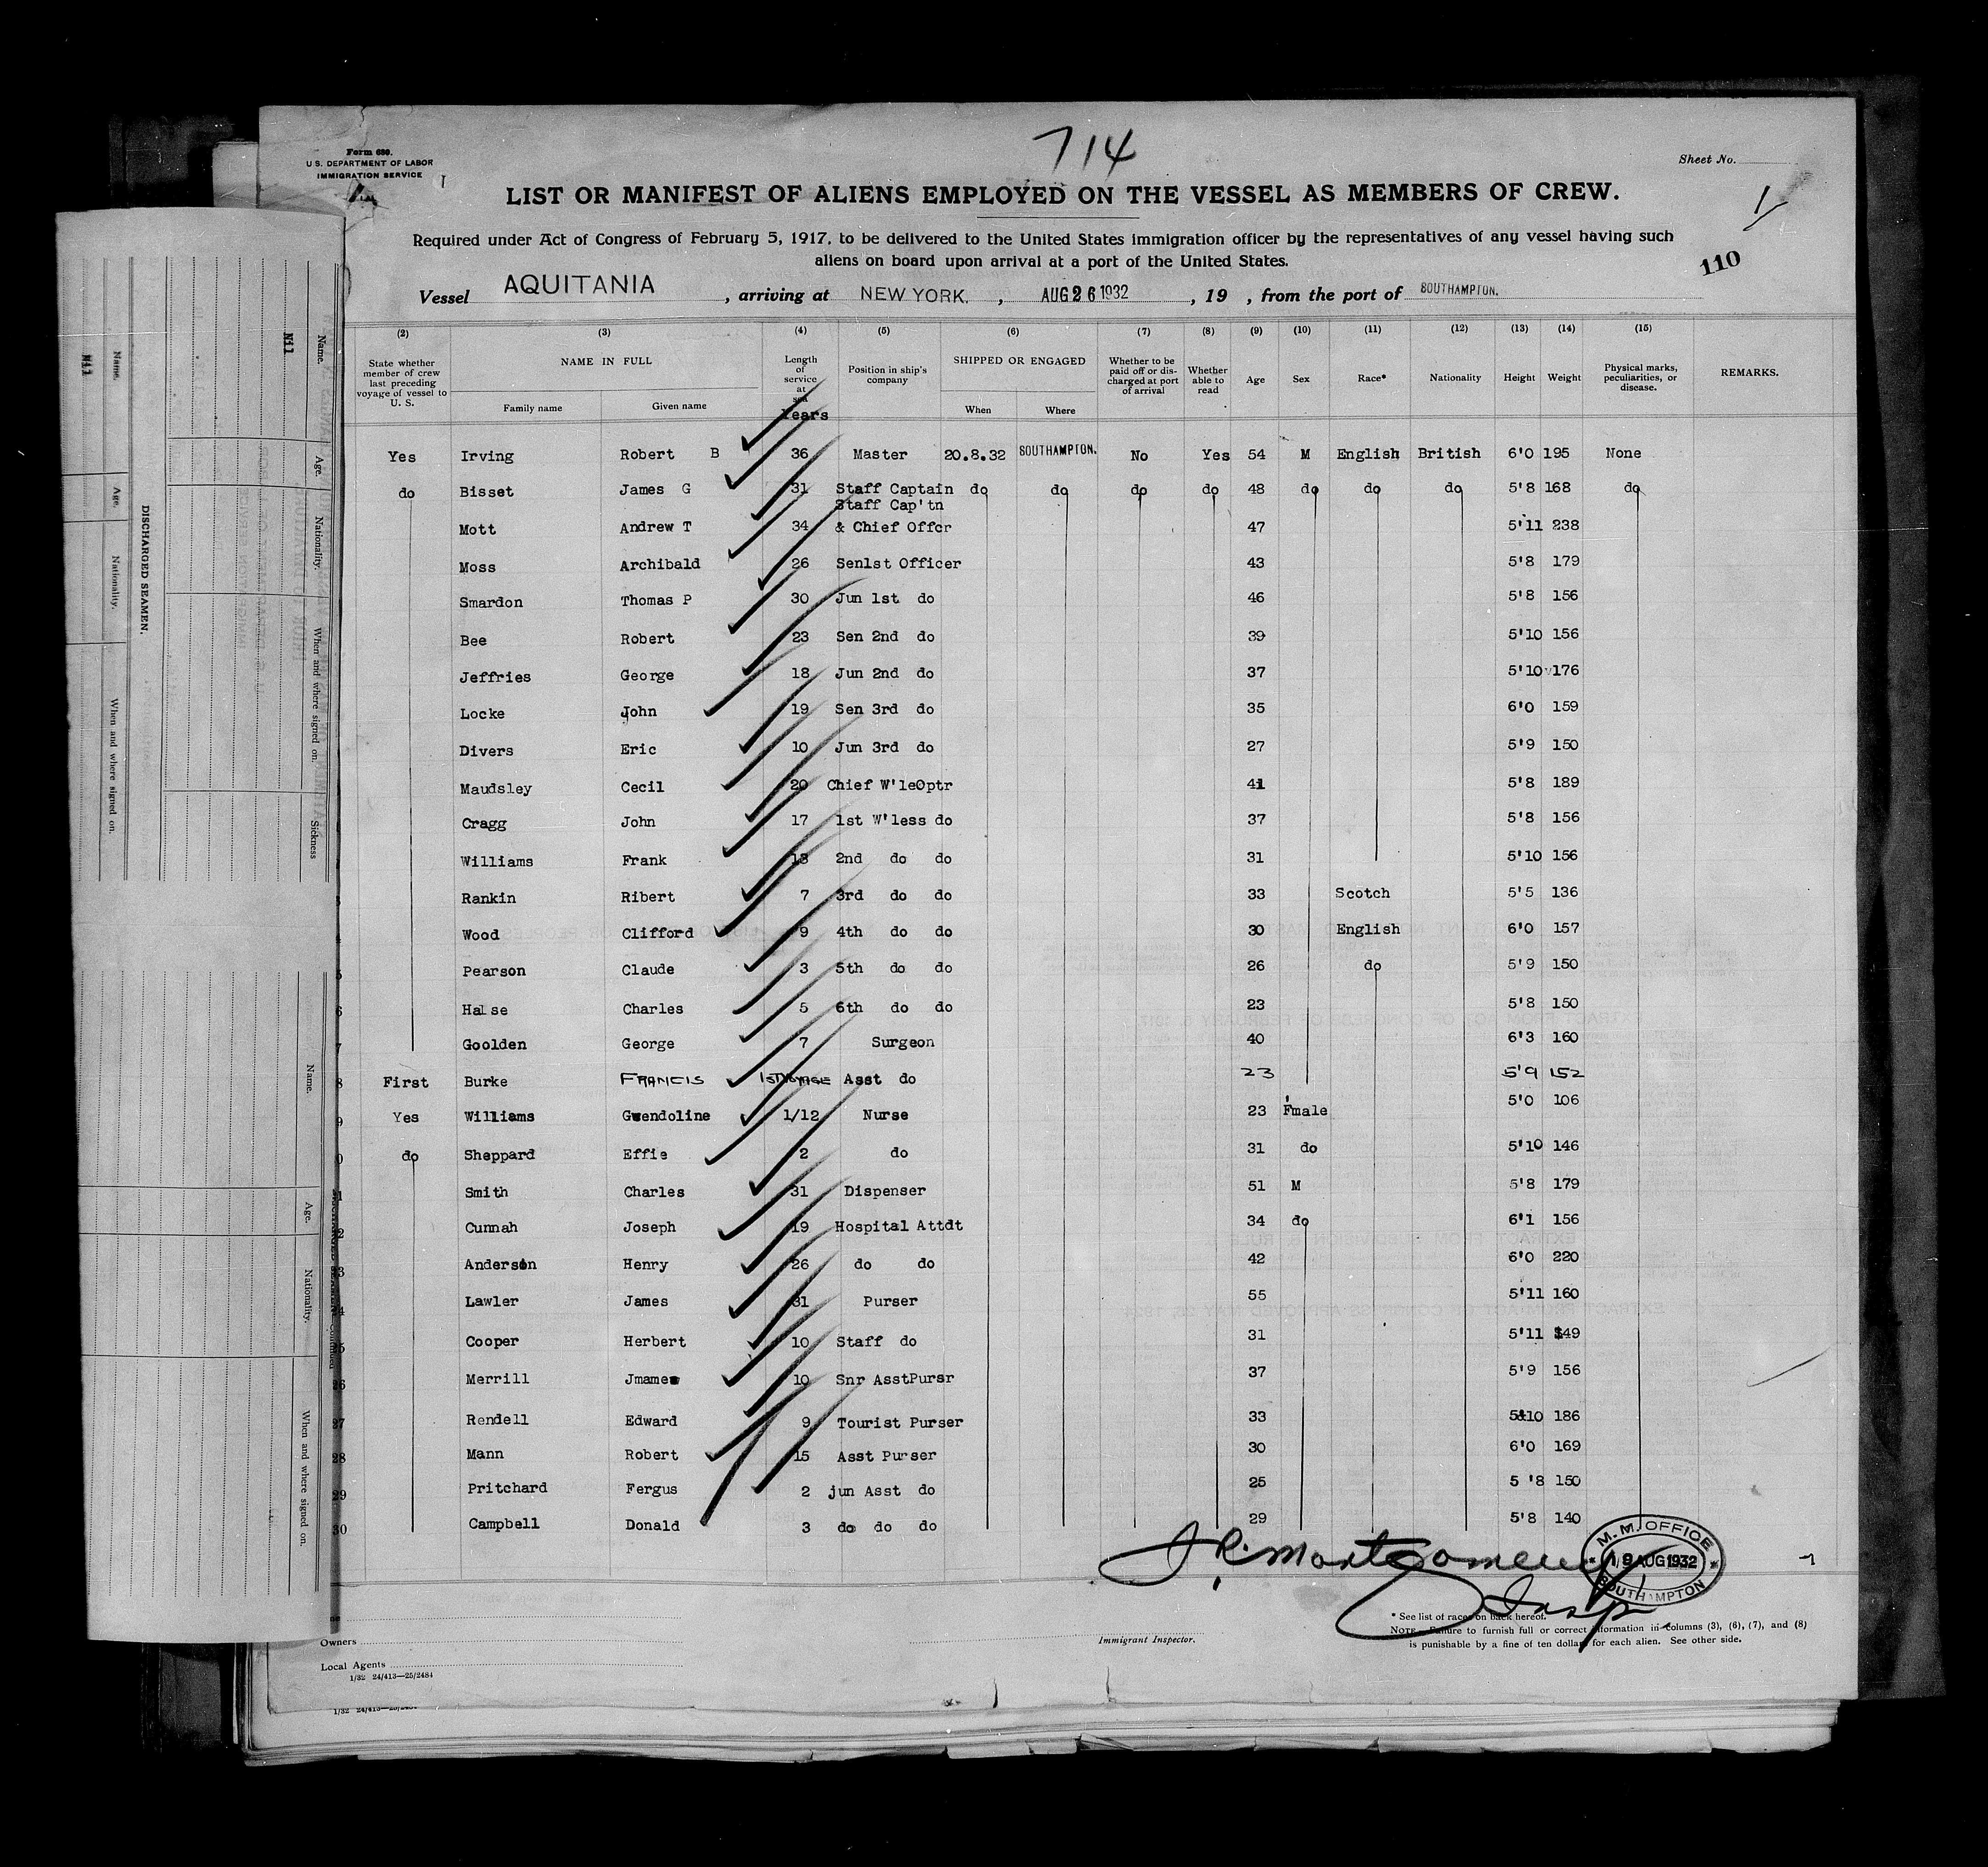 714
Form 680.
U.S. DEPARTMENT OF LABOR
IMMIGRATION SERVICE
Sheet No.
1
LIST OR MANIFEST OF ALIENS EMPLOYED ON THE VESSEL AS MEMBERS OF CREW.
Required under Act of Congress of February 5, 1917, to be delivered to the United States immigration officer by the representatives of any vessel having such
aliens on board upon arrival at a port of the United States.
110
Vessel AQUITANIA, arriving at NEW YORK., AUG 26 1932, 19 , from the port of SOUTHAMPTON.
(2) (3) (4) (5) (6) (7) (8) (9) (10) (11) (12) (13) (14) (15)
State whether member of crew last preceding voyage of vessel to U. S. NAME IN FULL Family name Given name Length of service at sea Years Position in ship's company SHIPPED OR ENGAGED When Where Whether to be paid off or discharged at port of arrival Whether able to read Age Sex Race* Nationality Height Weight Physical marks, peculiarities, or disease. REMARKS.
Yes Irving Robert B 36 Master 20.8.32 SOUTHAMPTON. No Yes 54 M English British 6'0 195 None
do Bisset James G 31 Staff Captain do do do do 48 do do do 5'8 168 do
Staff Cap'tn
Mott Andrew T 34 & Chief Offcr 47 5'11 238
Moss Archibald 26 Sen1st Officer 43 5'8 179
Smardon Thomas P 30 Jun 1st do 46 5'8 156
Bee Robert 23 Sen 2nd do 39 5'10 156
Jeffries George 18 Jun 2nd do 37 5'10 176
Locke John 19 Sen 3rd do 35 6'0 159
Divers Eric 10 Jun 3rd do 27 5'9 150
Maudsley Cecil 20 Chief W'leOptr 41 5'8 189
Cragg John 17 1st W'less do 37 5'8 156
Williams Frank 13 2nd do do 31 5'10 156
Rankin Ribert 7 3rd do do 33 Scotch 5'5 136
Wood Clifford 9 4th do do 30 English 6'0 157
Pearson Claude 3 5th do do 26 do 5'9 150
6 Halse Charles 5 6th do do 23 5'8 150
7 Goolden George 7 Surgeon 40 6'3 160
8 First Burke FRANCIS 1ST VOYAGE Asst do 23 5'9 152
9 Yes Williams Gwendoline 1/12 Nurse 23 F'male 5'0 106
0 do Sheppard Effie 2 do 31 do 5'10 146
Smith Charles 31 Dispenser 51 M 5'8 179
Cunnah Joseph 19 Hospital Attdt 34 do 6'1 156
Anderson Henry 26 do do 42 6'0 220
Lawler James 31 Purser 55 5'11 160
25 Cooper Herbert 10 Staff do 31 5'11 149
26 Merrill Jmames 10 Snr AsstPursr 37 5'9 156
27 Rendell Edward 9 Tourist Purser 33 5'10 186
28 Mann Robert 15 Asst Purser 30 6'0 169
29 Pritchard Fergus 2 jun Asst do 25 5 '8 150
30 Campbell Donald 3 do do do 29 5'8 140
J.R. Montgomery
Insp
M.M. OFFICE
19 AUG 1932
SOUTHAMPTON
Owners
Local Agents
1/32 24/413—25/2484
Immigrant Inspector.
* See list of races on back hereof.
NOTE.—Failure to furnish full or correct information in columns (3), (6), (7), and (8)
is punishable by a fine of ten dollars for each alien. See other side.
DISCHARGED SEAMEN.
Name. Age. Nationality. When and where signed on.
Nil
Name. Age. Nationality. When and where signed on. Sickness
Nil
Name. Age. Nationality. When and where signed on.